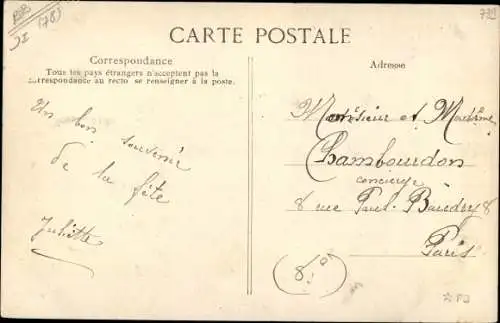 (78)
CARTE POSTALE
Correspondance
Tous les pays étrangers n'acceptent pas la
correspondance au recto se renseigner à la poste.
Adresse
Un bon souvenir
de la fête
Juliette
Monsieur et Madame
Chambourdon
concierge
8 rue Paul-Baudry 8
Paris